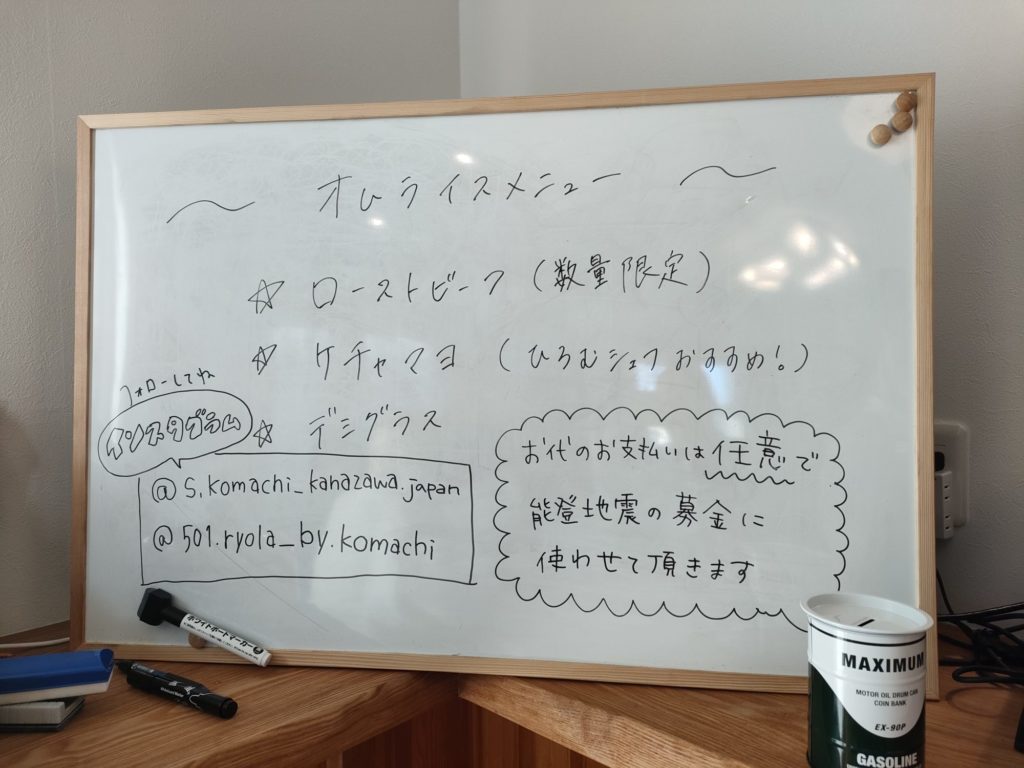 〜 オムライスメニュー 〜
☆ ローストビーフ (数量限定)
☆ ケチャマヨ (ひろむシェフおすすめ!)
☆ デミグラス
フォローしてね
インスタグラム
@s.komachi_kanazawa.japan
@501.ryola_by.komachi
お代のお支払いは任意で
能登地震の募金に
使わせて頂きます
ホワイトボートマーカー
MAXIMUM
MOTOR OIL DRUM CAN
COIN BANK
EX-90P
GASOLINE